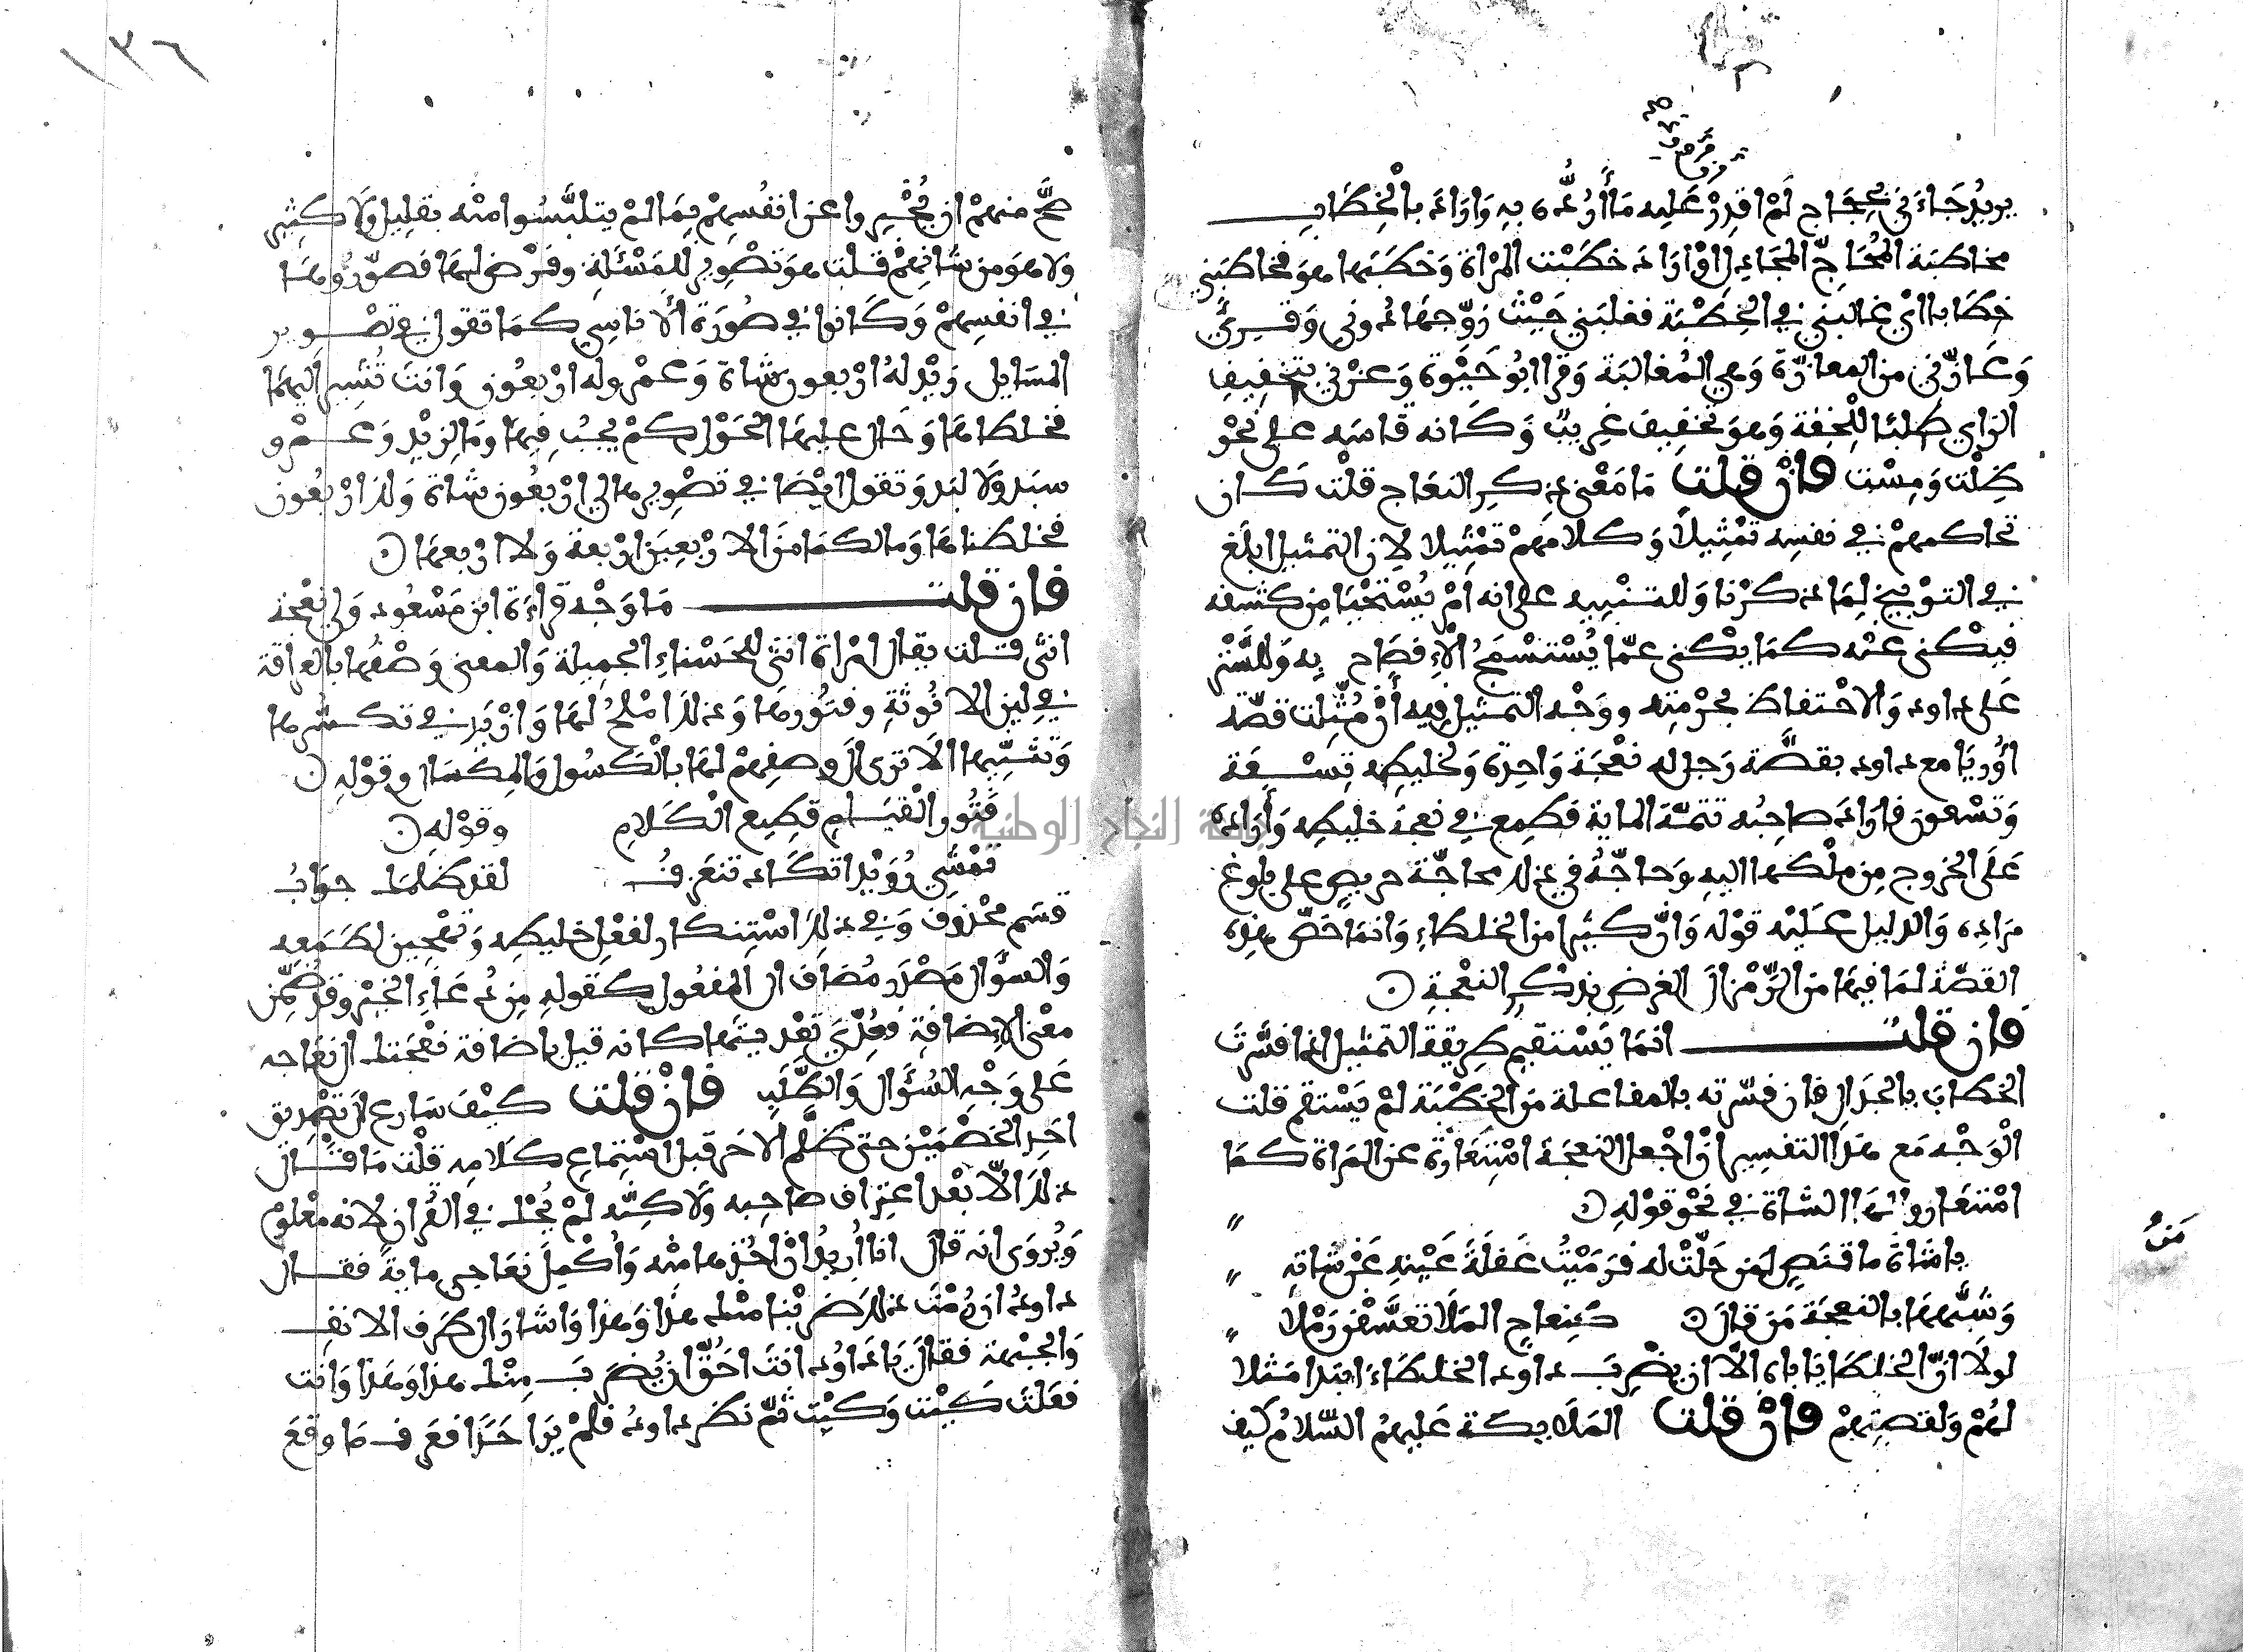 يريدُ جَاءَني بحِجَاج لَمْ اقدِرْ عَليه مَا أرُدُّه به وَارَادَ بالْخِطَابِ
مخاطبَة المُحَاجّ المجَادِل اوْ ارَادَ خطَبْت المرْاة وَخطَبَها هوَ فخاطبَني
خِطَابا اي غالبَني في الخِطْبَة فغلبَني حَيْثُ زوّجهَا دُوني وَقرِئ
وَعَازّني من المعازّة وَهي المُغالبَة وَقرا ابُو حَيْوة وَعزَني بتخفيف
الزاي طلبًا للْخفة وَهوَ تخفيف غريبٌ وَكانه قاسَه على نحْو
ظِلْت وَمِسْت فانْ قلت مَا مَعْنى ذكرِ النعَاج قلْت كَان
تحاكمهمْ في نفسِه تمْثِيلًا وَكلامهمْ تمْثيلا لان التمثيل ابلَغ
في التوْبيخ لِمَا ذكرْنا وَللتنْبِيه على انه امْر يُسْتَحْيَا مِن كشفه
فيكْنى عنْه كمَا يكْنى عمّا يُسْتسْمَجُ الْإفصَاح بِه وَللسَّتْر
عَلى داود وَالاحْتفاظ بحرْمتِه ووَجْه التمثيل فيه أنْ مُثِّلت قصّة
اوُريَا مع داود بقصَّة رَجل له نعْجَة وَاحِدة وَلخليطِه تِسْعَة
وَتسْعون فارَادَ صاحِبُه تتمّة الماية فطمِع في نعجة خليطِه وَأرَادَهُ
عَلَى الخروج مِن ملْكها اليه وَحاجّهُ في ذلك محاجّة حريصٍ على بلوغ
مرَادِه وَالدليل عليْه قوْله وَانّ كثيرا من الخلطاءِ وَانما خَصّ هذِه
القصّة لمَا فيها مَن الرّمْز الى الغرض بذكْرِ النعْجة ن
فان قلت انمَا يَسْتقيم طريقة التمثيل اذا فسّرتَ
الخطابَ بالجدَال فان فسّرته بالمفاعلة مَن الخِطْبَة لمْ يَسْتقم قلت
الْوَجْه مَع هذا التفسير انْ اجْعل النعجَة اسْتعَارة عن المرَاة كمَا
اسْتعَاروا لهَا الشاة في نحْو قوْلِه ن
يا شاة ما قنَصٍ لمَن حَلّتْ له فرَمَيْتُ غفلَةَ عَيْنهِ عَنْ شاتِه
مَنُ
وَشَبّههَا بالنعجَة مَن قالَ ن كنِعاجِ المَلَا تعسَّفْن رَمْلا
لولَا انّ الخلطَا يَاباه الّا ان يضْرِبَ داود الخلطَاءَ ابتدَا مَثلا
لهُمْ وَلقصتِهمْ فانْ قلت المَلَايكة عَليهمُ السّلامُ كيف
١٣٦
صَحَّ منهمْ ان يُخْبِروا عن انفُسِهمْ بِمَا لمْ يتلبَّسُوا منْه بقلِيل وَلَا كثِير
وَلا هوَ من شانِهمْ قلْت هوَ تصْوِير للمَسْئلةِ وفرْض لهَا فصوّرُوهَا
في انفسِهمْ وَكَانوا في صُورَة الأنَاسِي كمَا تقول في تصْوير
المسَايل زيْد لهُ ارْبعون شاة وَعمْر وله ارْبعُون وَانتَ تُشير اليهمَا
فخلطاهَا وَحَال عليها الحَوْل كمْ يجبُ فِيهَا ومَا لزيْد وَعمْرو
سبَد وَلَا لبَد وَتقول ايْضا في تصْوِيرها لي ارْبعُون شاة وَلك ارْبعُون
فخلطناهَا وَما لكمَا منَ الارْبعِينَ ارْبعة وَلا ارْبعهَا ن
فان قلت مَا وَجْه قراءَة ابن مَسْعُود وَلي نعْجة
انثى قلت يقال امْرَاة انثى للحَسْناءِ الجميلة وَالمعنى وَصْفُها بالعراقة
في لين الانُوثةِ وفتُورهَا وَذلك امْلحُ لهَا وَازْيَد في تكسُّرِها
وَتثنِّيها الَا ترى الى وصفِهمْ لهَا بالْكسُول وَالمِكسَال وقوْله ن
فتُور القيَام قطِيع الكَلام وقوْله ن
تمْشِّي رُوَيْدا تكَاد تنغرفُ لقد ظلمَك جوَابُ
قسَم محْذوف وَفي ذلك اسْتِنكار لفعْل خليطِه وَتهْجين لطمَعِه
وَالسؤَال مَصْدَر مُضاف الى المفعُول كقولِه مِن دُعَاءِ الخيْر وقد ضُمِّن
معْنى الاضافةِ فعُدّيَ تعْديتَها كانه قيل باضافة نعْجَتك الى نعَاجِه
عَلى وَجْه السُؤَال وَالطّلَب فانْ قلت كيْف سَارع الى تصْدِيق
احَدِ الخَصْمَيْن حتى ظلّم الاخَر قبل اسْتِماع كلَامِه قلْت مَا قالَ
ذلكَ الّا بَعْد اعتِرَاف صاحِبه وَلَاكِنّه لمْ يُحْك في القُرآن لانه معْلوْم
وَيُروَى انه قالَ انا أُريدُ انْ اخُذهَا منْه وَأُكْمِلَ نعَاجي مايةً فقَال
داودُ ان رُمْتَ ذلك ضرَبْنا منْك هذا وَهذا وَاشارَ الى طرَف الانفِ
وَالجبْهة فقالَ يَا دَاوُد انتَ احَقُّ ان يُضرَبَ مِنْك هذا وَهذا وَانت
فعَلتَ كيْت وَكيْت ثمّ نظر داودُ فلمْ يرَ احَدًا فعَرف مَا وقعَ